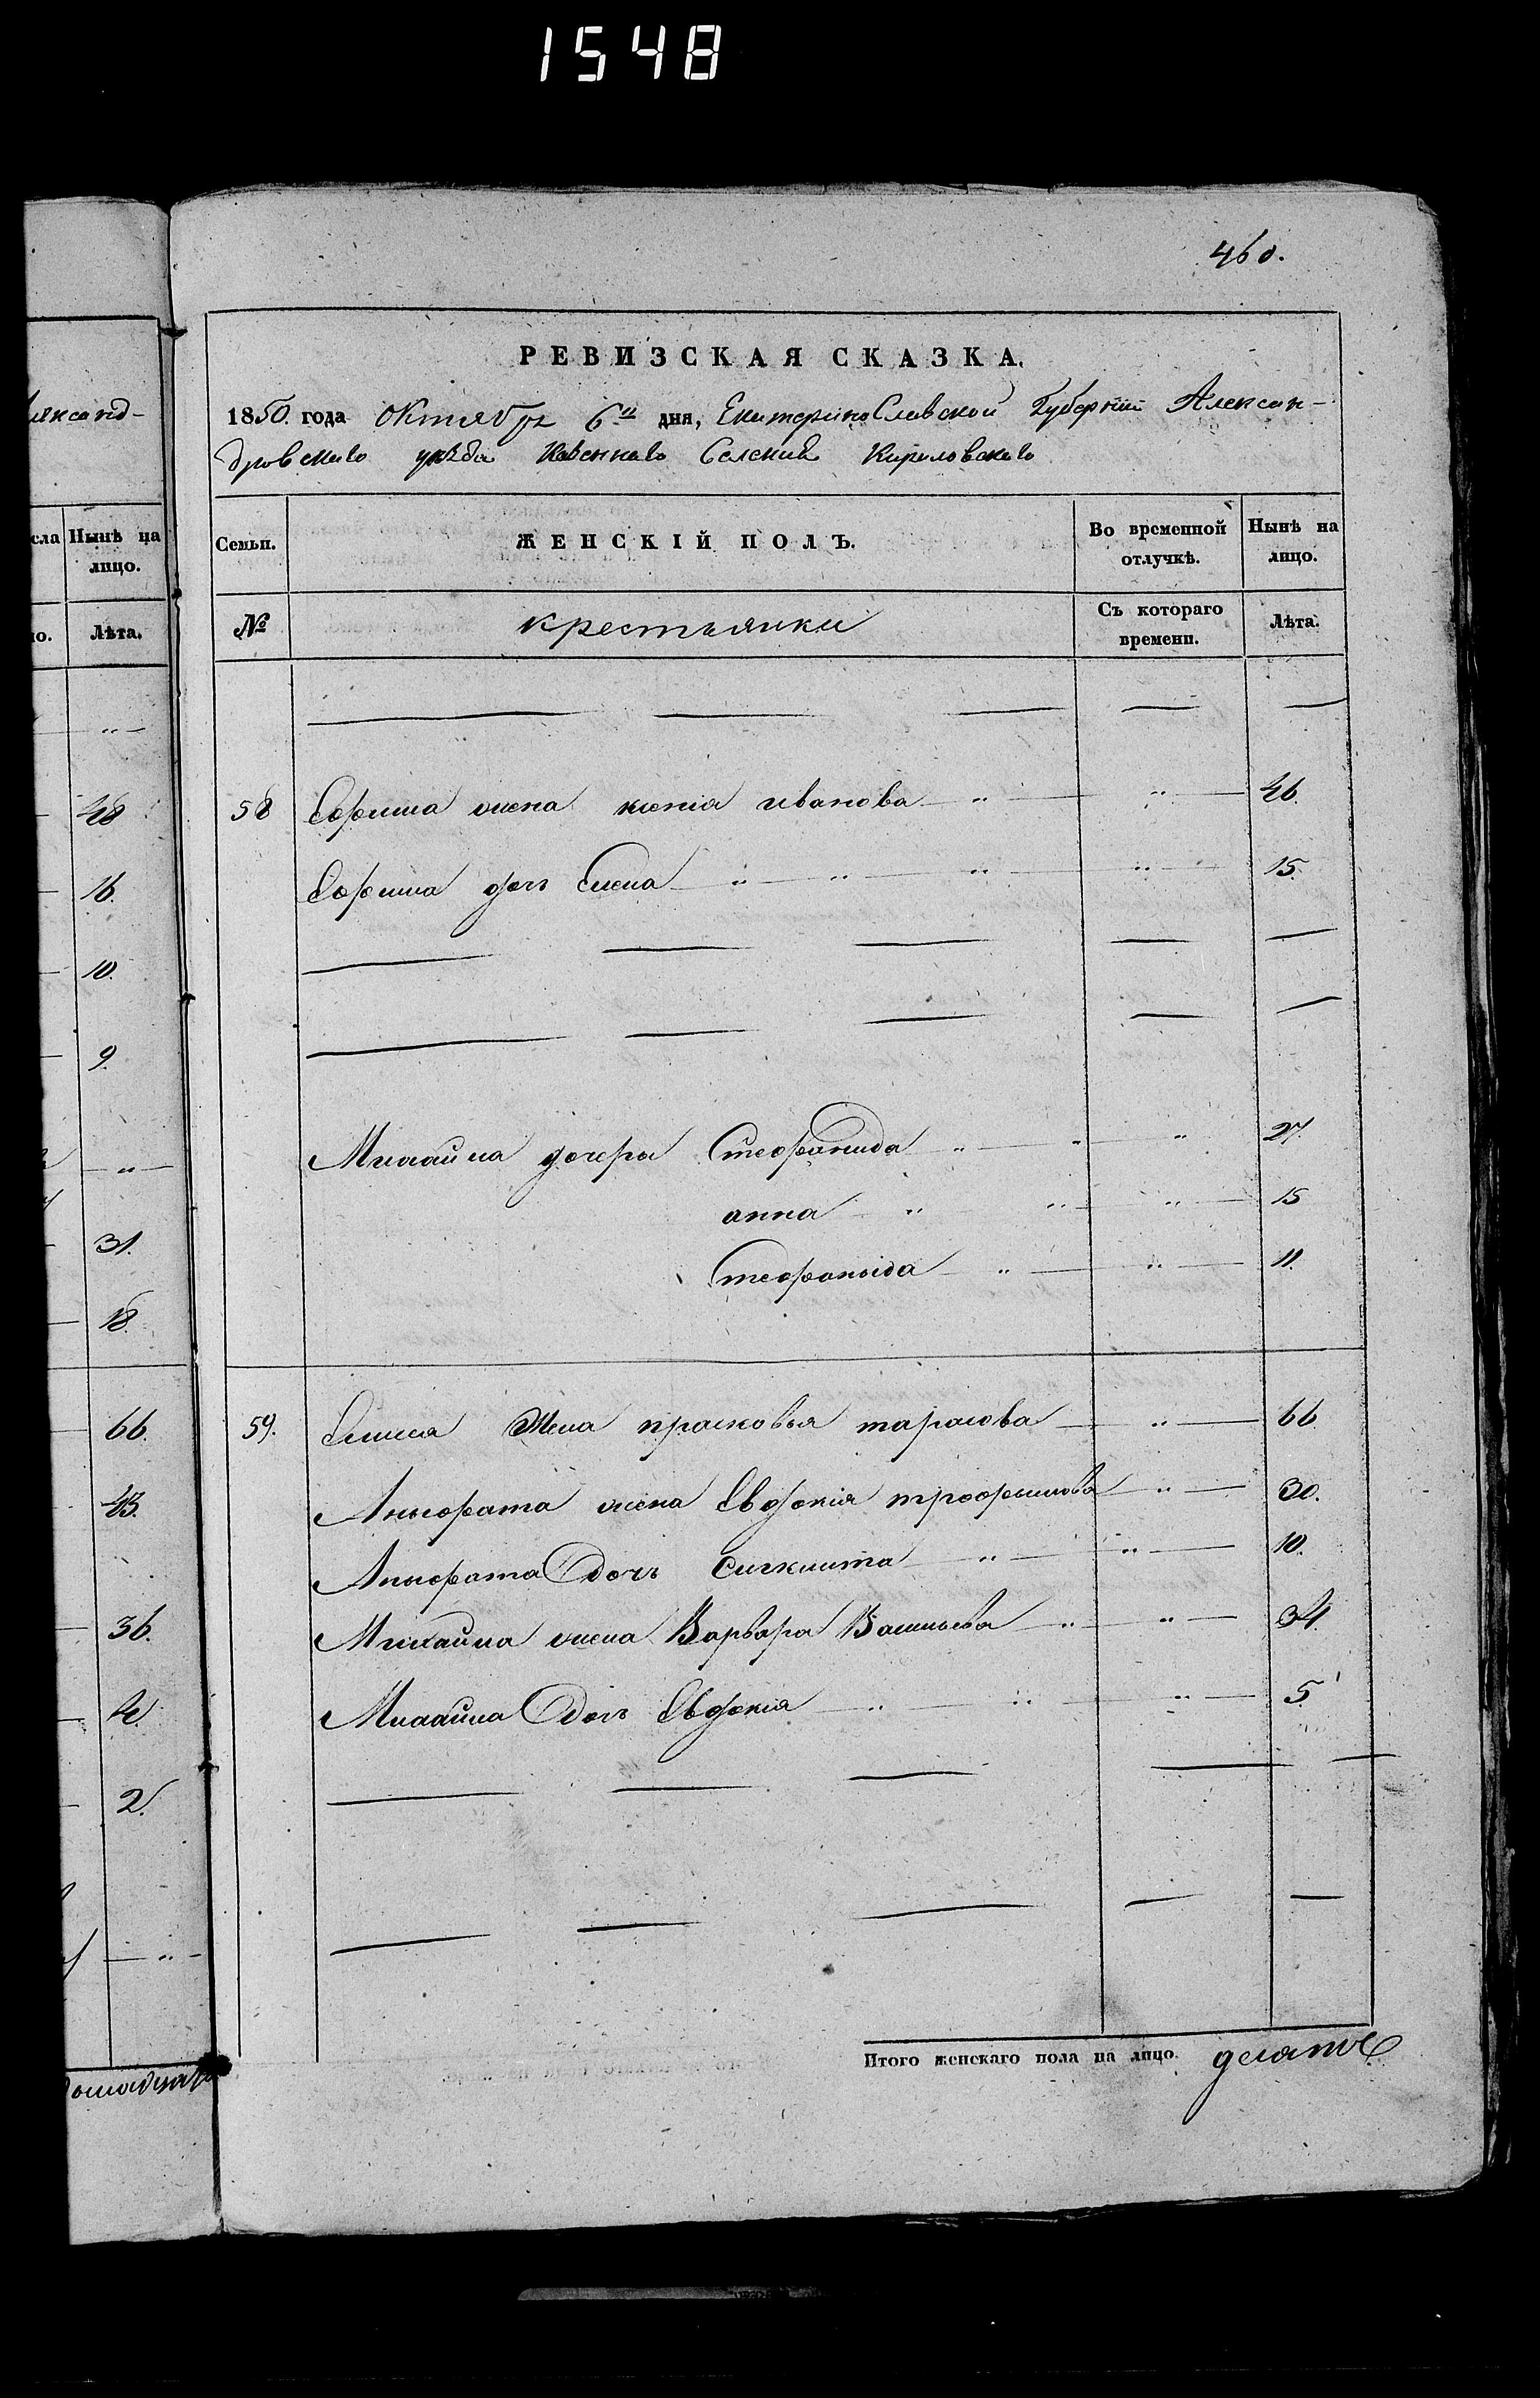 1548
460.
Александ-
сла Нынѣ на
лицо.
но. Лѣта.
48
16.
10.
9.
31.
18.
66.
43.
36.
4.
2.
РЕВИЗСКАЯ СКАЗКА.
1850. года Октября 6го дня, Екатеринославской Губерніи Алексан-
дровскаго уѣзда Казеннаго Селенія Кириловскаго
Семьи. ЖЕНСКІЙ ПОЛЪ. Во временной отлучкѣ. Нынѣ на лицо.
№ крестьянки Съ котораго времени. Лѣта.
58 Софона жена ксенія иванова " " 46.
Софона дочь Елена " " " " 15.
Михайла дочери Стефанида " " " 27.
анна " " " 15
Стефанида " " 11.
59. жена прасковья тарасова " 66
жена Евдокія трофимова " 30.
Дочь " " 10.
Михайла жена Варвара Васильева " " 34.
Михайла Дочь Евдокія " " " 5.
Итого женскаго пола на лицо. десять